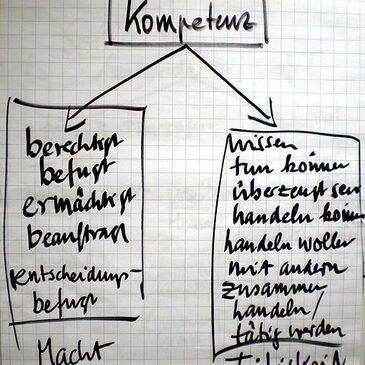 Kompetenz
berechtigt
befugt
ermächtigt
beauftragt
entscheidungs-
befugt
Macht
wissen
tun können
überzeugt sein
handeln können
handeln wollen
mit andern
zusammen
handeln/
tätig werden